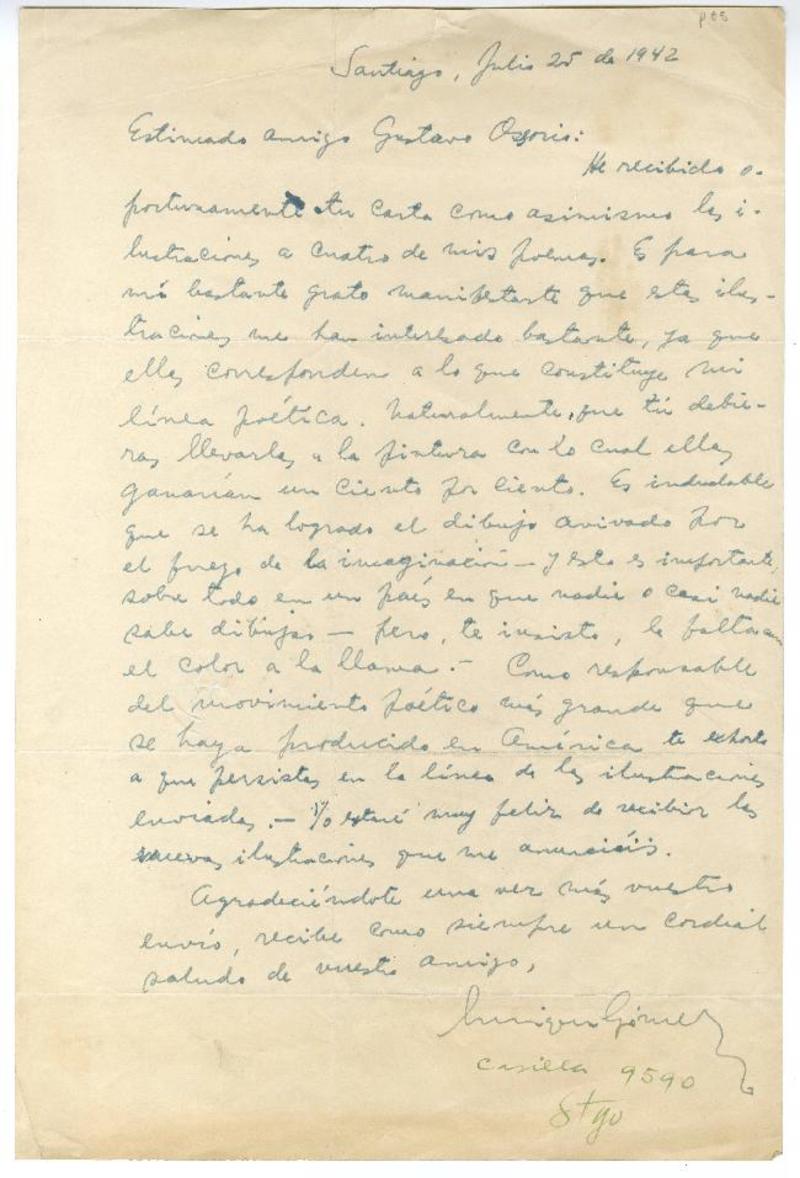 Santiago, Julio 25 de 1942
Estimado amigo Gustavo Ossorio:
He recibido o-
portunamente tu carta como asimismo las i-
lustraciones a cuatro de mis poemas. Es para
mí bastante grato manifestarte que estas ilus-
traciones me han interesado bastante, ya que
ellas corresponden a lo que constituye mi
línea poética. Naturalmente, que tú debie-
ras llevarlas a la pintura con lo cual ellas
ganarían un ciento por ciento. Es indudable
que se ha logrado el dibujo avivado por
el fuego de la imaginación — y esto es importante,
sobre todo en un país en que nadie o casi nadie
sabe dibujar — pero, te insisto, le falta
el color a la llama. — Como responsable
del movimiento poético más grande que
se haya producido en América te exhorto
a que persistas en la línea de las ilustraciones
enviadas. — Yo estaré muy feliz de recibir las
nuevas ilustraciones que me anunciáis.
Agradeciéndote una vez más vuestro
envío, recibe como siempre un cordial
saludo de vuestro amigo,
Enrique Gómez
Casilla 9590
Stgo